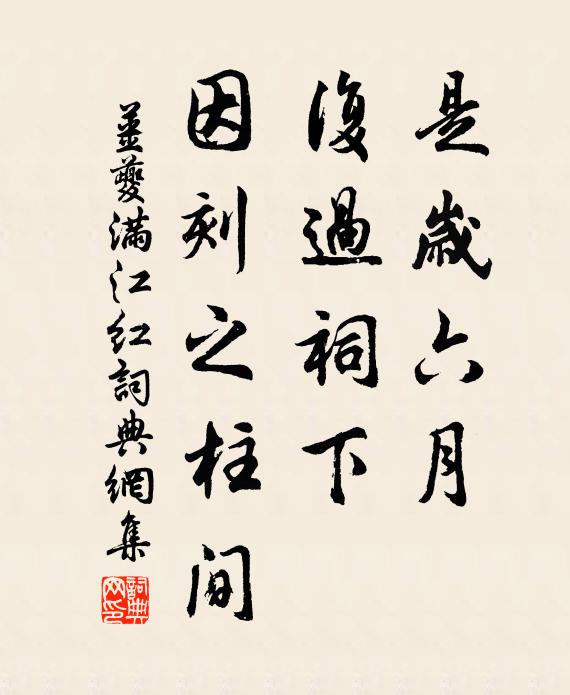 是歲六月
復過祠下
因刻之柱间
姜夔满江红詞典網集
詞典网印